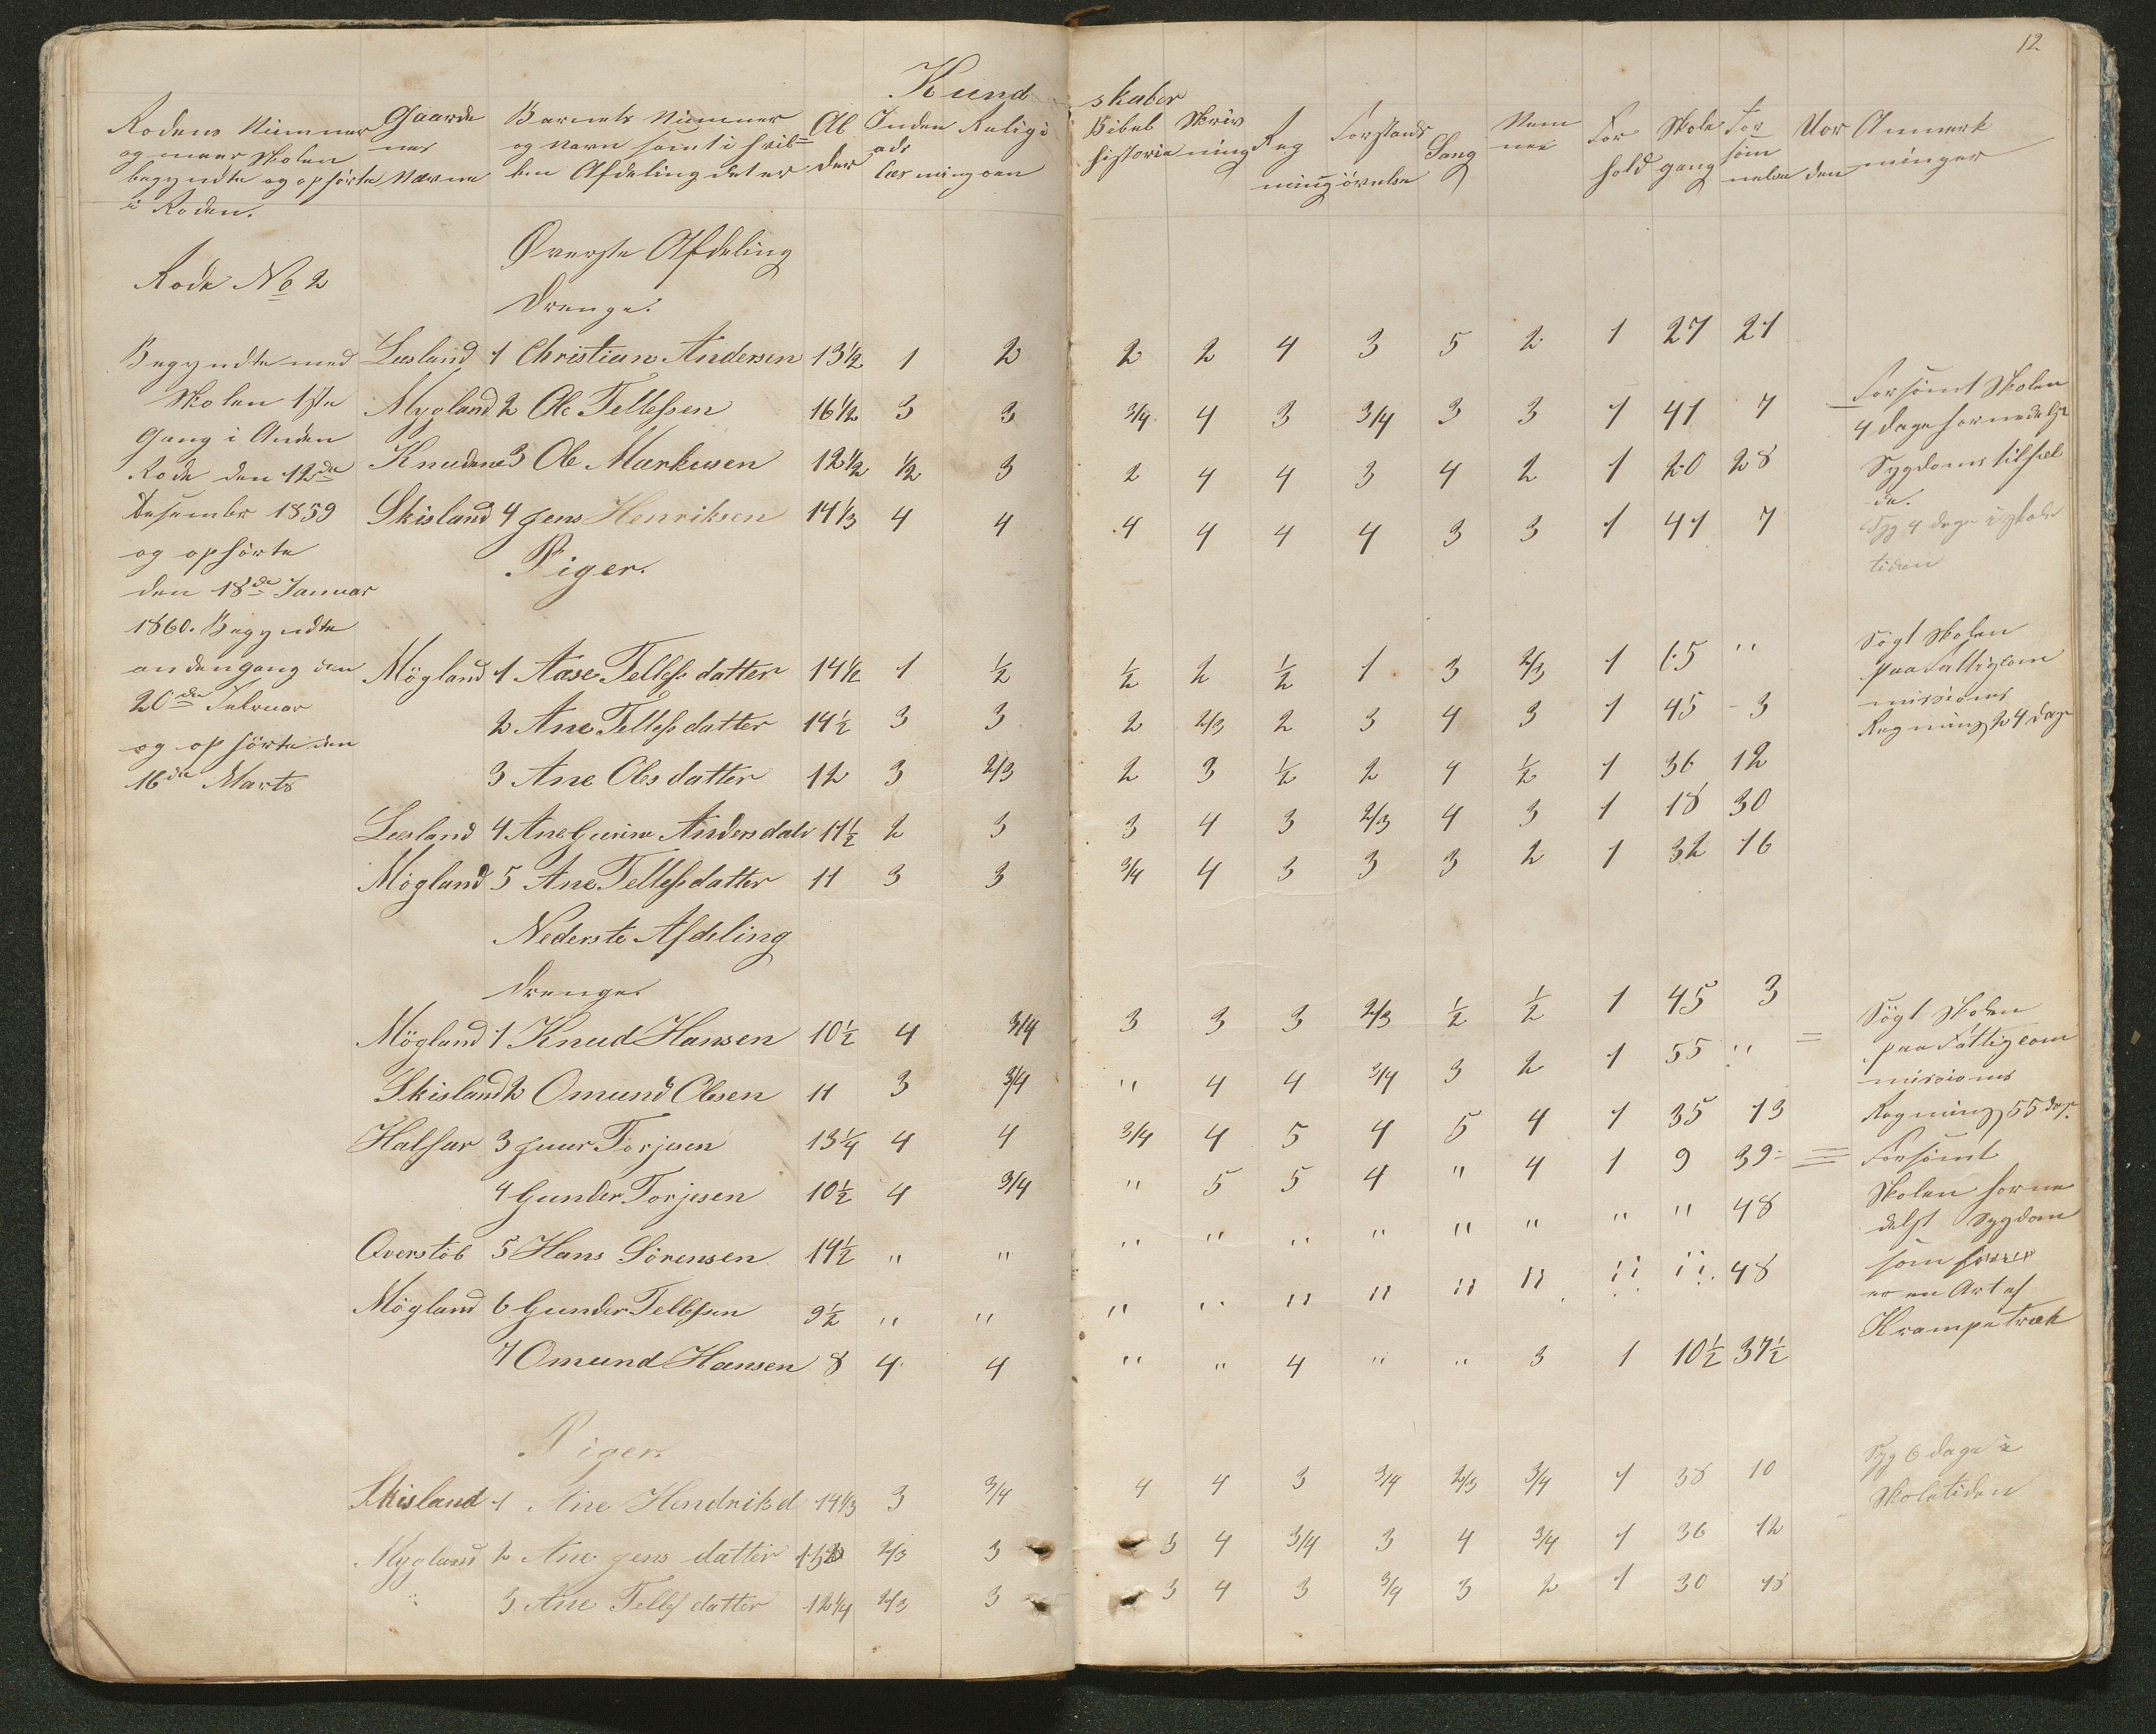 12
Kund skaber
Rodens Nummer Gaarde Barnets Nummer Al Inden Religi Bibel Skriv Reg Forstands Sang Nem For Skole For Uor Anmærk
og naar Skolen nes og Navn samt i hvil= der ads historie ning ning øvelse me hold gang søm den ninger
begyndte og ophørte Navne ken Afdeling det er læsning onen nelse
i Roden.
Øverste Afdeling
Rode No 2
Drenge.
Begyndte med Leesland 1 Christian Andersen 13½ 1 2 2 2 4 3 5 2 1 27 21
Skolen 1ste Mygland 2 Ole Tellefsen 16½ 3 3 3/4 4 3 3/4 3 3 1 41 7 Forsømt Skolen
Gang i Anden 4 dage formedelst
Rode den 12de Knudene 3 Ole Markusen 12½ ½ 3 2 4 4 3 4 2 1 20 28 Sygdoms tilfæl
de.
Desember 1859 Skisland 4 Jens Henriksen 14⅓ 4 4 4 4 4 4 3 3 1 41 7 Syg 4 dage i skole
tiden
og ophørte
Piger.
den 18de Januar
1860. Begyndte
andengang den Mögland 1 Aase Tellefsdatter 14½ 1 ½ ½ 2 ½ 1 3 2/3 1 65 " Søgt Skolen
paa Fattigcom
missions
20de Februar 2 Ane Tellefsdatter 14½ 3 3 2 2/3 2 3 4 3 1 45 3 Regning 24 dage
og ophørte den
16de Marts 3 Ane Olesdatter 12 3 2/3 2 3 ½ 2 4 ½ 1 36 12
Leesland 4 Ane Gurine Andersdatr 11½ 2 3 3 4 3 2/3 4 3 1 18 30
Mögland 5 Ane Tellefsdatter 11 3 3 3/4 4 3 3 3 2 1 32 16
Nederste Afdeling
Drenge.
Mögland 1 Knud Hansen 10½ 4 3/4 3 3 3 2/3 ½ ½ 1 45 3 Søgt Skolen
paa Fattigcom
missions
Skisland 2 Omund Olesen 11 3 3/4 " 4 4 3/4 3 2 1 55 " Regning 55 dage.
Halsar 3 Juur Torjesen 13¼ 4 4 3/4 4 5 4 5 4 1 35 13 Forsømt
4 Gunder Torjesen 10½ 4 3/4 " 5 5 4 " 4 1 9 39 Skolen forme
delst Sygdom
Qverstöb 5 Hans Sörensen 14½ " " " " " " " " " " 48 som
er en Art af
Mögland 6 Gunder Tellefsen 9½ " " " " " " " " " " 48 Krampetræk
7 Omund Hansen 8 4 4 " " 4 " " 3 1 10½ 37½
Piger.
Skisland 1 Ane Hendriksd 14⅓ 3 3/4 4 4 3 3/4 2/3 3/4 1 38 10 Syg 6 dage i
Skoletiden
Mygland 2 Ane Jens datter 2/3 3 3 4 3/4 3 4 3/4 1 36 12
" 3 Ane Tellefsdatter 12¼ 2/3 3 3 4 3 3/4 3 2 1 30 18